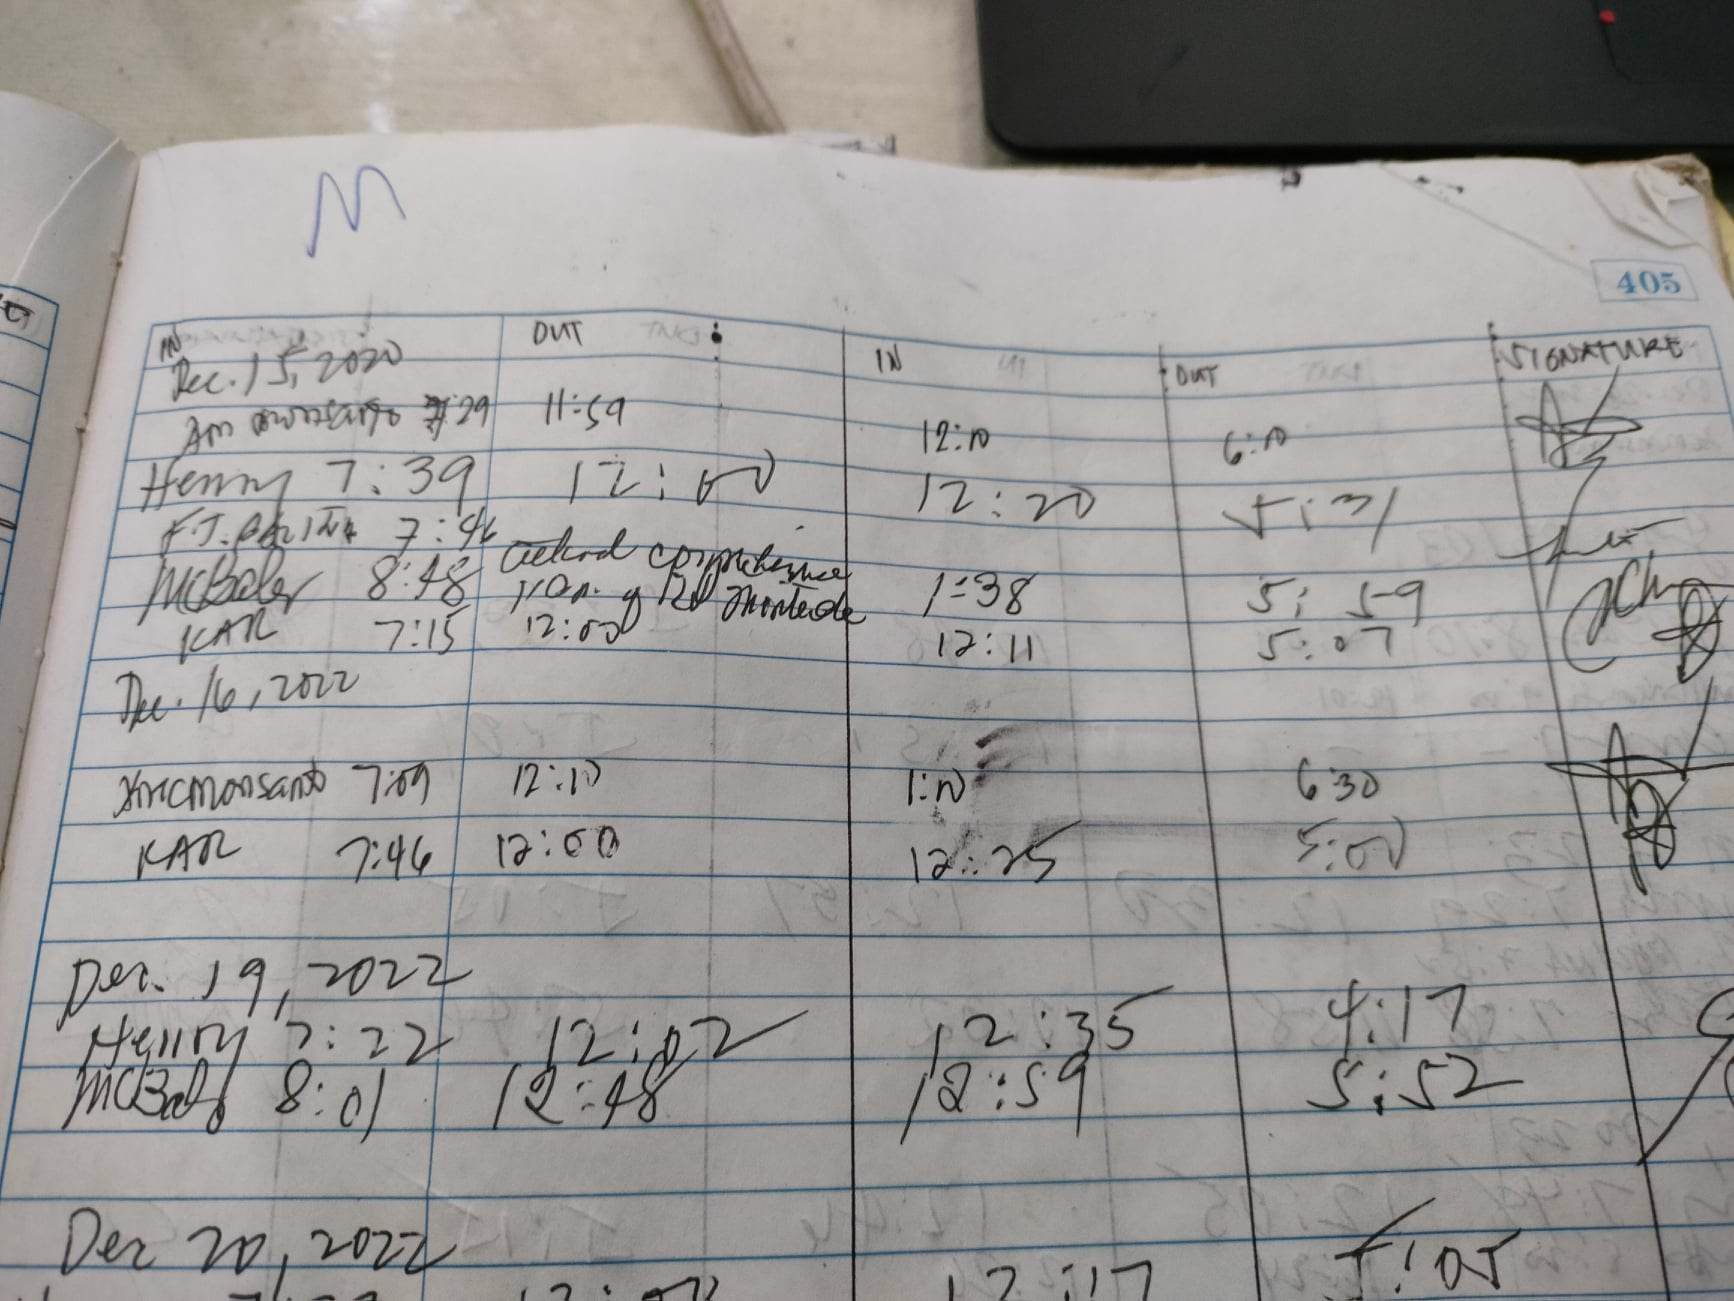 M
405
IN OUT IN OUT SIGNATURE
Dec. 15, 2020
Am monsanto 7:29 11:59 12:10 6:10
Henny 7:39 12:00 12:20 5:31
F.J. 7:46
McBaler 8:48 attend 1:38 5:59
KAR 7:15 12:00 12:11 5:07
Dec. 16, 2022
monsanto 7:09 12:10 1:10 6:30
KAR 7:46 12:00 12:25 5:00
Dec. 19, 2022
Henny 7:22 12:02 12:35 4:17
8:01 12:48 12:59 5:52
Dec 20, 2022
12:17 5:05